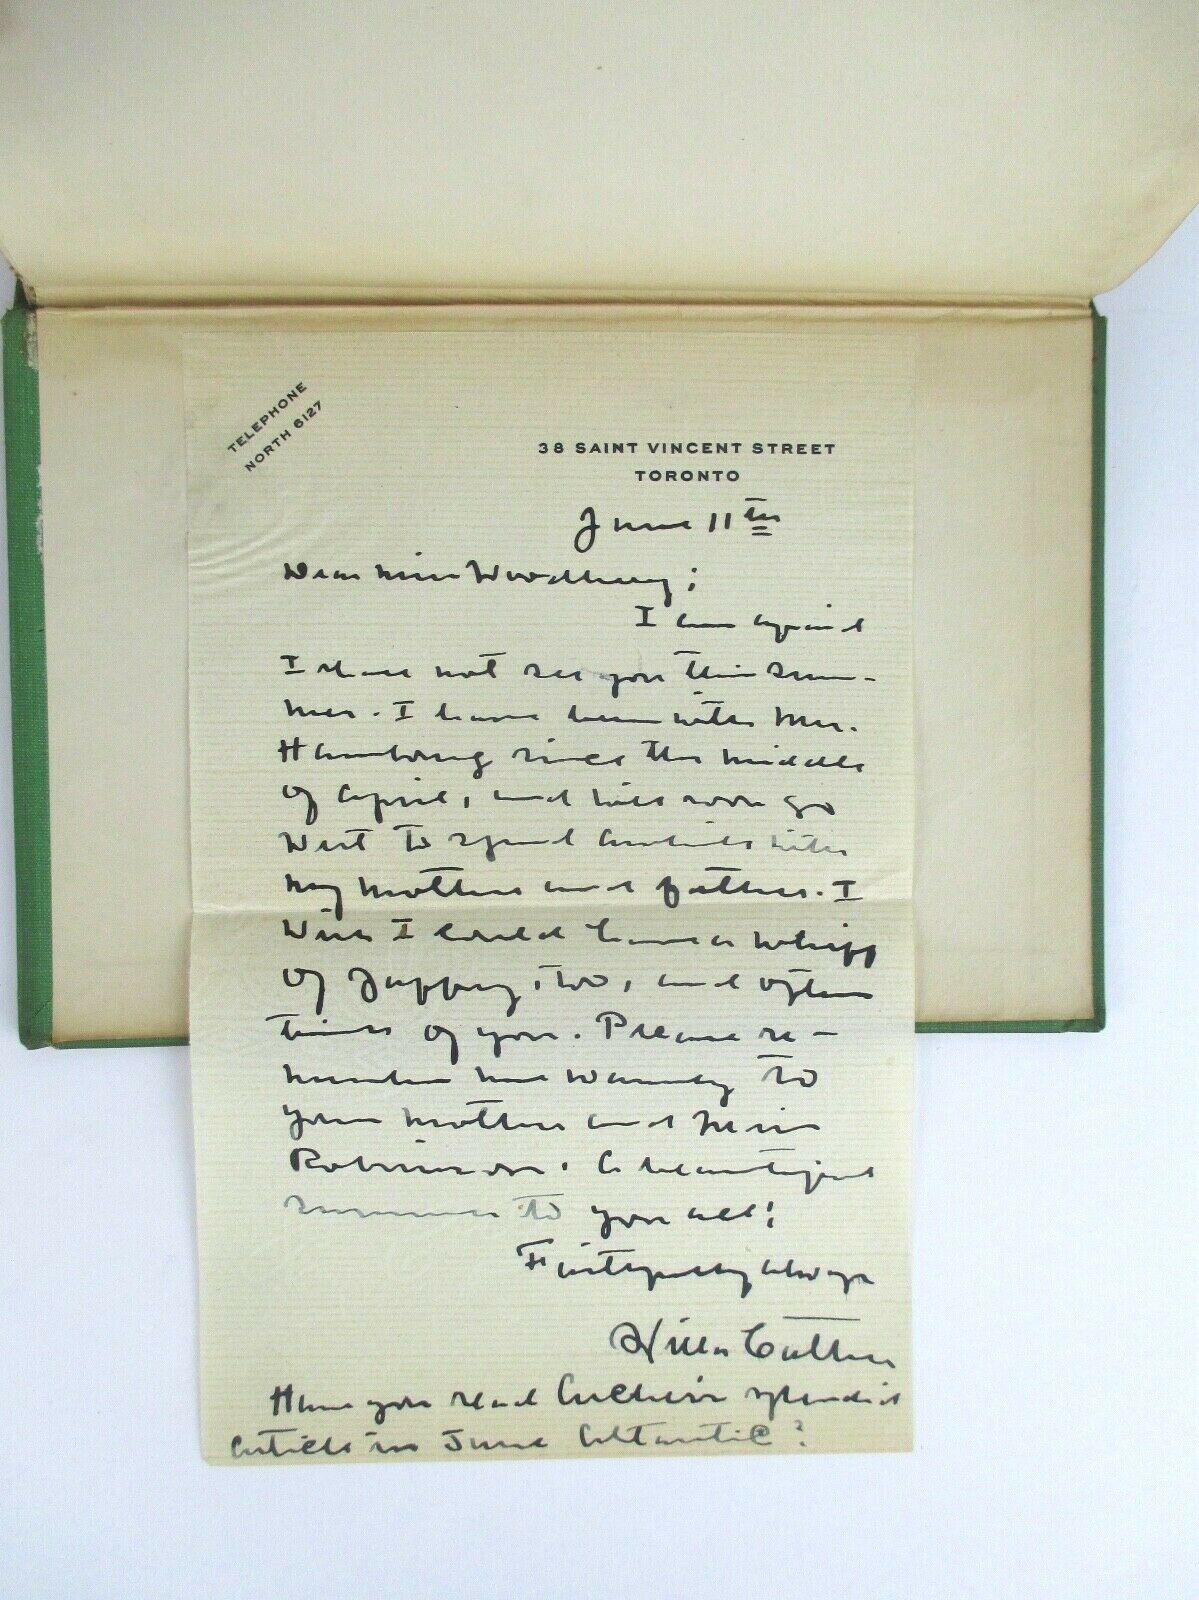 TELEPHONE
NORTH 6127
38 SAINT VINCENT STREET
TORONTO
June 11th
Dear Miss
I am afraid
I shall not see you this sum-
mer. I have been with Mrs.
Hambourg since the middle
of April, and will soon go
West to spend with
my mother and father. I
wish I could have a whiff
of Jaffrey, too, and often
of you. Please re-
member me warmly to
your mother and Miss
Robinson. A beautiful
summer to you all!
Faithfully always
Willa Cather
Have you read splendid
article in June Atlantic?